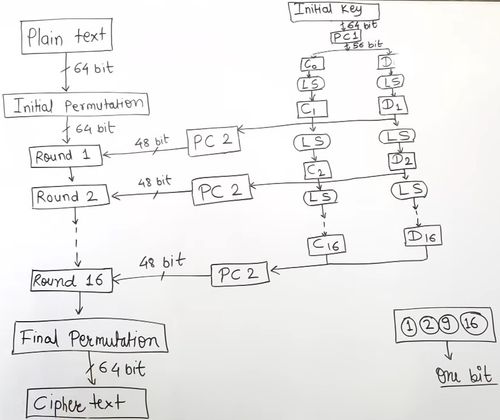 Initial Key
64 bit
PC1
56 bit
Plain text
64 bit
C0
D
LS
LS
Initial Permutation
C1
D1
64 bit
48 bit
PC 2
LS
LS
Round 1
C2
D2
48 bit
PC 2
LS
LS
Round 2
C16
D16
48 bit
PC 2
Round 16
1 2 9 16
Final Permutation
64 bit
One bit
Cipher text